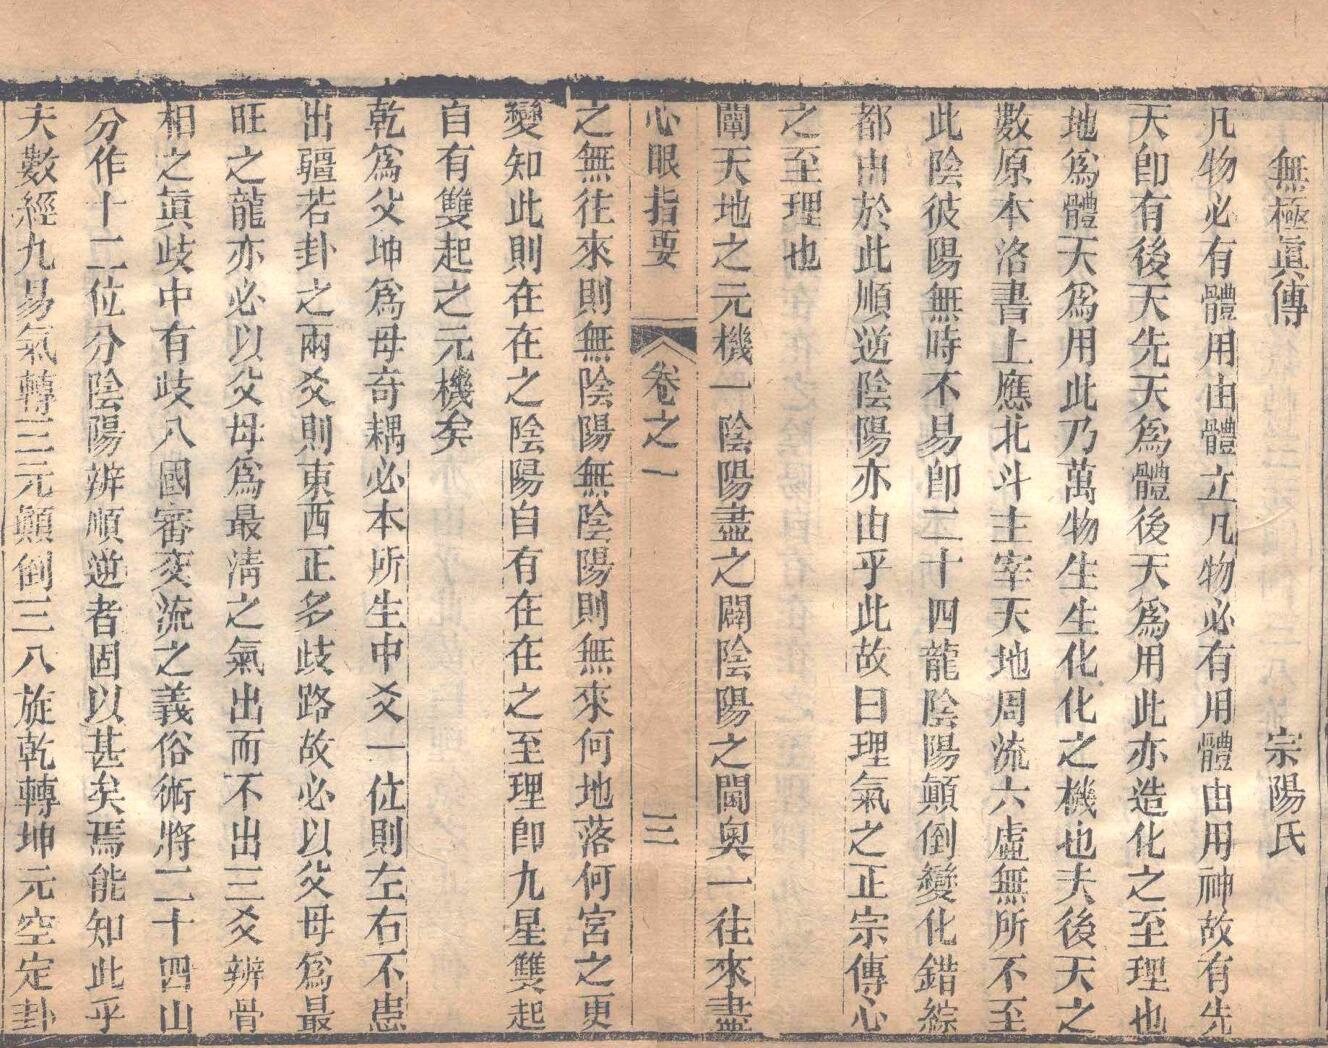 無極眞傳 宗陽氏
凡物必有體用由體立凡物必有用體由用神故有先
天卽有後天先天爲體後天爲用此亦造化之至理也
地爲體天爲用此乃萬物生生化化之機也夫後天之
數原本洛書上應北斗主宰天地周流六虛無所不至
此陰彼陽無時不易卽二十四龍陰陽顚倒變化錯綜
都由於此順逆陰陽亦由乎此故曰理氣之正宗傳心
之至理也
闡天地之元機一陰陽盡之闢陰陽之閫奥一往來盡
心眼指要 卷之一 三
之無往來則無陰陽無陰陽則無來何地落何宮之更
變知此則在在之陰陽自有在在之至理卽九星雙起
自有雙起之元機矣
乾爲父坤爲母奇耦必本所生中爻一位則左右不患
出疆若卦之兩爻則東西正多歧路故必以父母爲最
旺之龍亦必以父母爲最淸之氣出而不出三爻辨骨
相之眞歧中有歧八國審交流之義俗術將二十四山
分作十二位分陰陽辨順逆者固以甚矣焉能知此乎
夫數經九易氣轉三元顚倒三八旋乾轉坤元空定卦